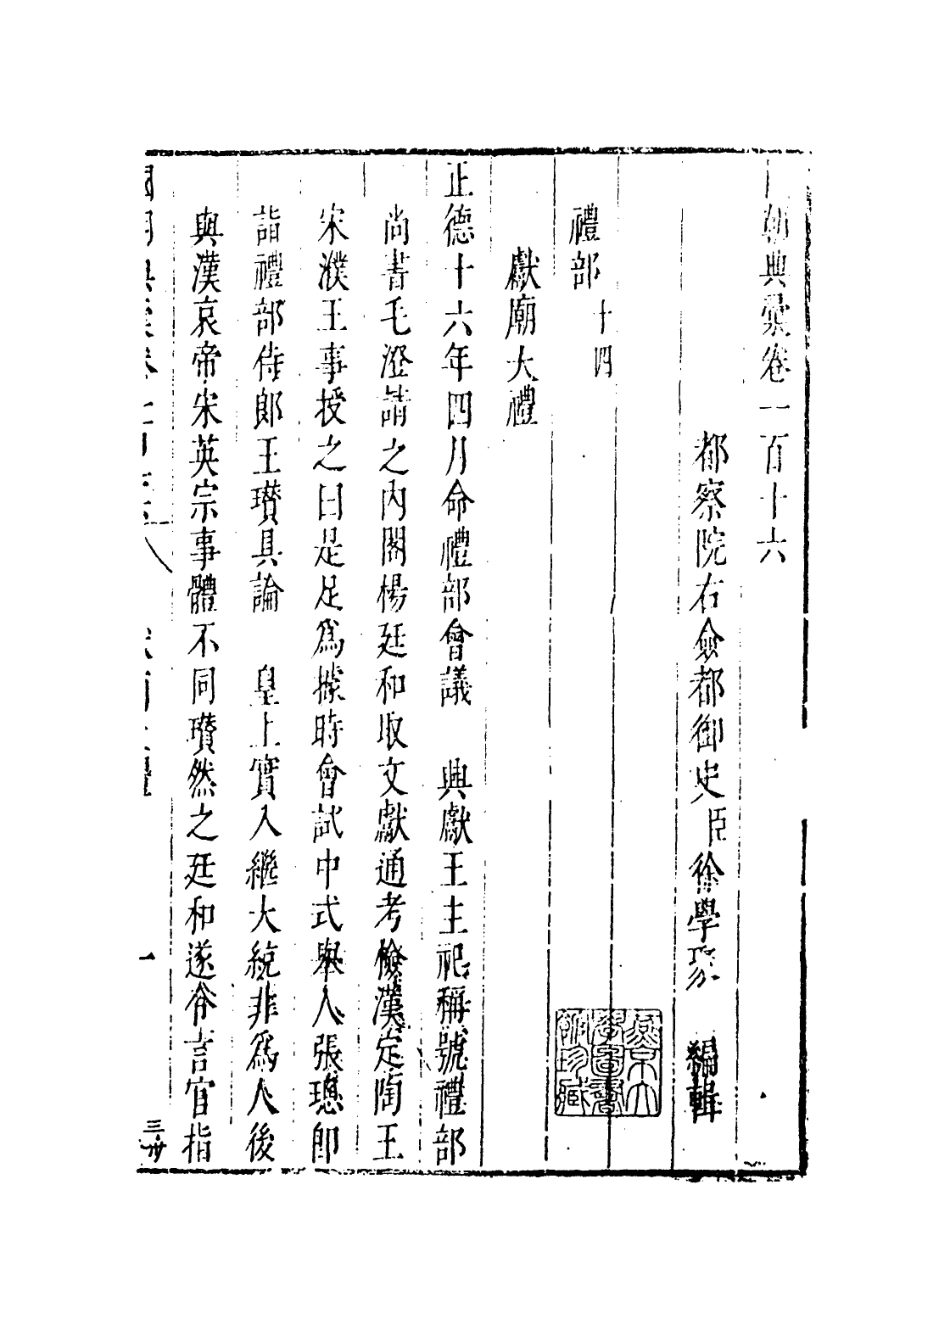 朝典彙卷一百十六
都察院右僉都御史臣徐學聚 編輯
禮部十四
獻廟大禮
正德十六年四月命禮部會議 興獻王主祀稱號禮部
尚書毛澄請之內閣楊廷和取文獻通考檢漢定陶王
宋濮王事授之曰是足爲據時會試中式舉人張璁卽
詣禮部侍郞王瓚具論 皇上實入繼大統非爲人後
與漢哀帝宋英宗事體不同瓚然之廷和遂令言官指
一
三卅
燕京大
學圖書
館珍藏